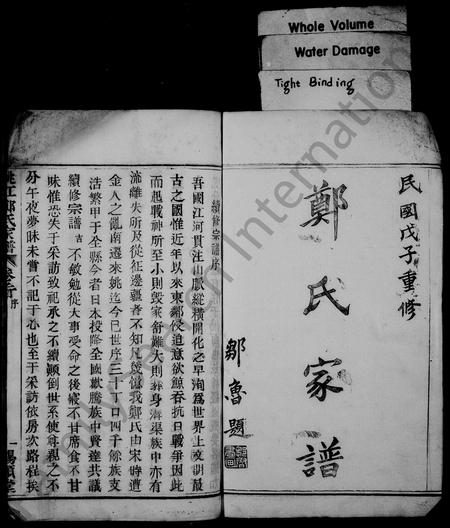 Whole Volume
Water Damage
Tight Binding
民國戊子重修
鄭氏家譜
鄒魯題
續修宗譜序
吾國江河貫注山脈縱橫開化之早洵爲世界上文明最
古之國惟近年以來東鄰侵迫意欲鯨吞抗日戰爭因此
而起載神所至小則毀家紓難大則葬身溝渠族中亦有
流離失所及從征邊疆者不知凡幾憶我鄭氏由宋時遭
金人之亂南遷來姚迄今已世序三十丁口四千餘族支
浩繁甲于全縣今者日本投降全國歡騰族中賢達共議
續修宗譜吉不敏勉從大事受命之後寢不甘席食不甘
味惟恐失于采訪致祀承之不續顚倒世系使尊親之不
分午夜夢昧未嘗不記于心也至于采訪依房次路程挨
姚江鄭氏家譜
卷之首 序
一